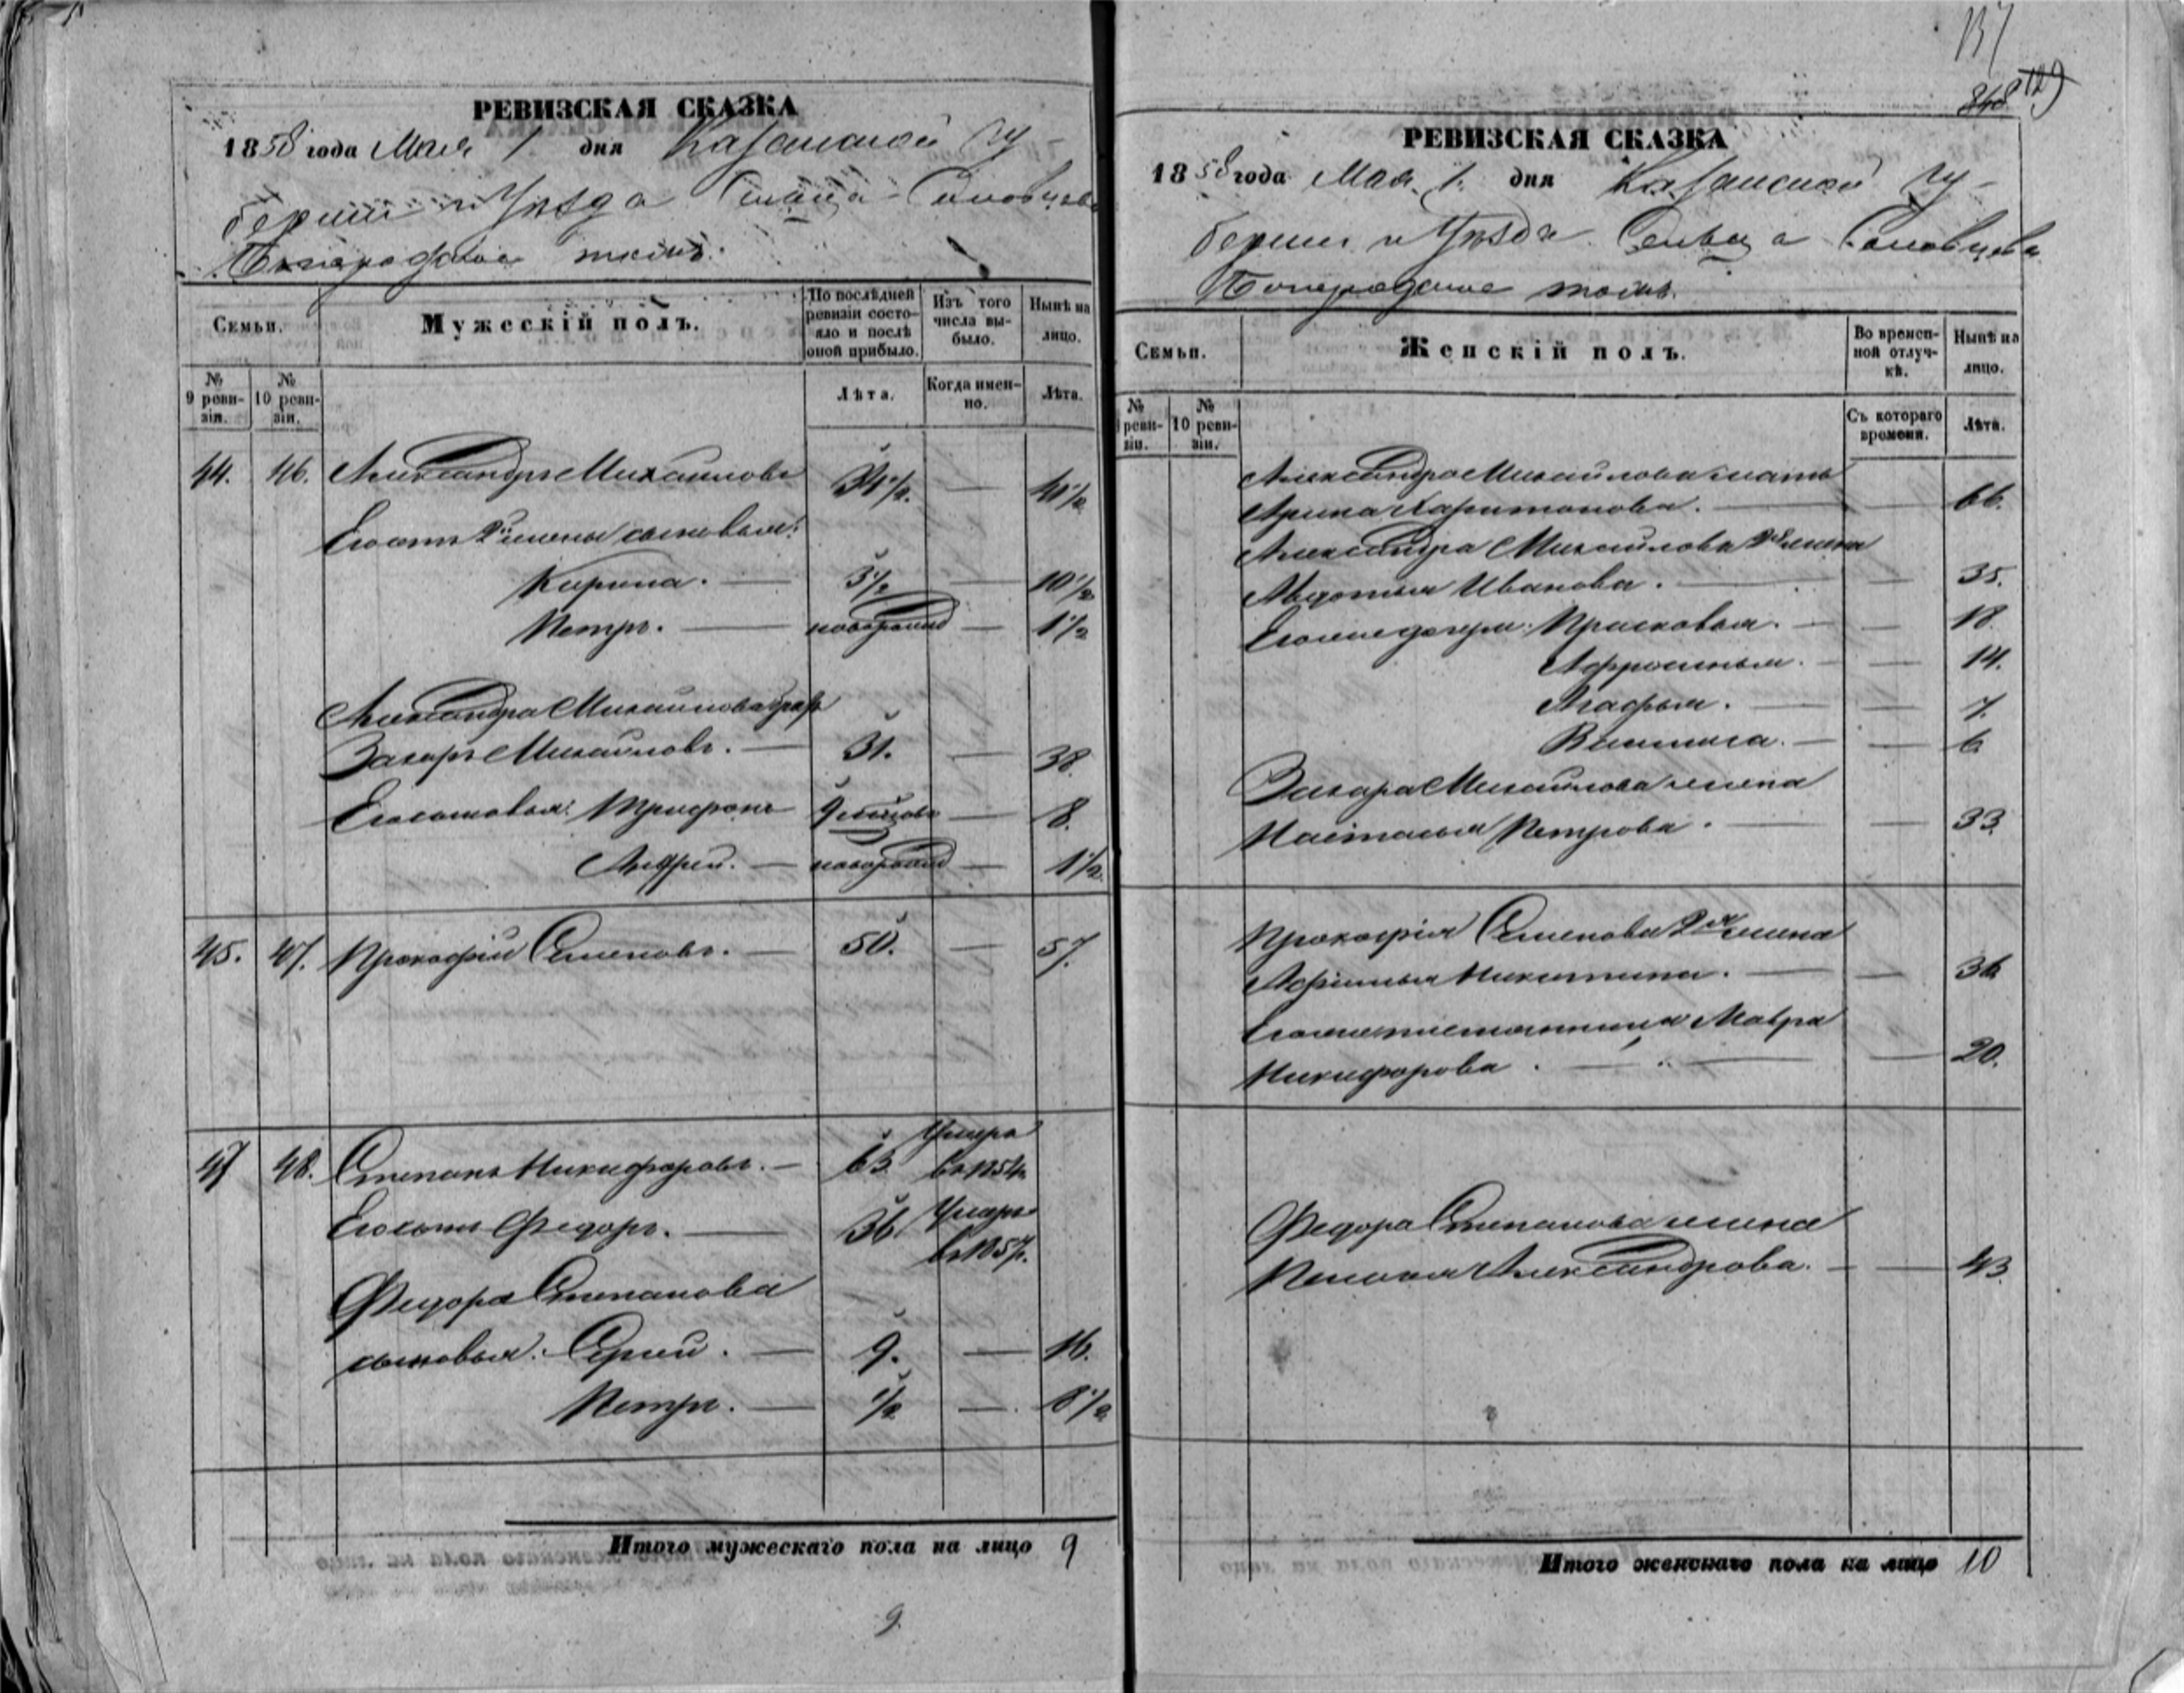 РЕВИЗСКАЯ СКАЗКА
1858 года Мая 1 дня Казанской Гу-
берніи и Уѣзда Сельца Соловцова
Богородское тожъ.
Семьи.
Мужескій полъ.
По послѣдней ревизіи состо-яло и послѣ оной прибыло.
Изъ того числа вы-было.
Нынѣ на лицо.
№ 9 реви-зіи.
№ 10 реви-зіи.
Лѣта.
Когда имен-но.
Лѣта.
44. 46. Александръ Михайловъ 34½. — 41½
Его отъ 2й жены сыновья:
Кирила. — 3½ — 10½
Петръ. — новорожд — 1½
Александра Михайлова братъ
Захаръ Михайловъ. — 31. — 38.
Его сыновья: Трифонъ 9 мѣсцовъ — 8.
Андрей. — новорожд — 1½
45. 47. Прокофій Семеновъ. — 50. — 57.
47 48. Степанъ Никифоровъ. — 63 Умеръ въ 1854.
Его сынъ Федоръ. — 36 Умеръ въ 1857.
Федора Степанова
сыновья: Сергей. — 9. — 16.
Петръ. — ½ — 8½
Итого мужескаго пола на лицо 9
9.
137
129
РЕВИЗСКАЯ СКАЗКА
1858 года Мая 1. дня Казанской Гу-
берніи и Уѣзда Сельца Соловцова
Богородское тожъ.
Семьи.
Женскій полъ.
Во времен-ной отлуч-кѣ.
Нынѣ на лицо.
№ реви-зіи.
№ 10 реви-зіи.
Съ котораго времени.
Лѣта.
Александра Михайлова мать
Арина Харитонова. — 66.
Александра Михайлова 2я жена
Авдотья Иванова. — 35.
Его же дочери: Прасковья. — 18
Афросинья. — 14.
Агафья. — 7.
6
Захара Михайлова жена
Настасья Петрова. — 33.
Прокофія Семенова 2я жена
Афимья Никитина. — 36
Его же племянница Мавра
Никифорова. — 20.
Федора Степанова жена
Пелагея Александрова. — 43.
Итого женскаго пола на лицо 10